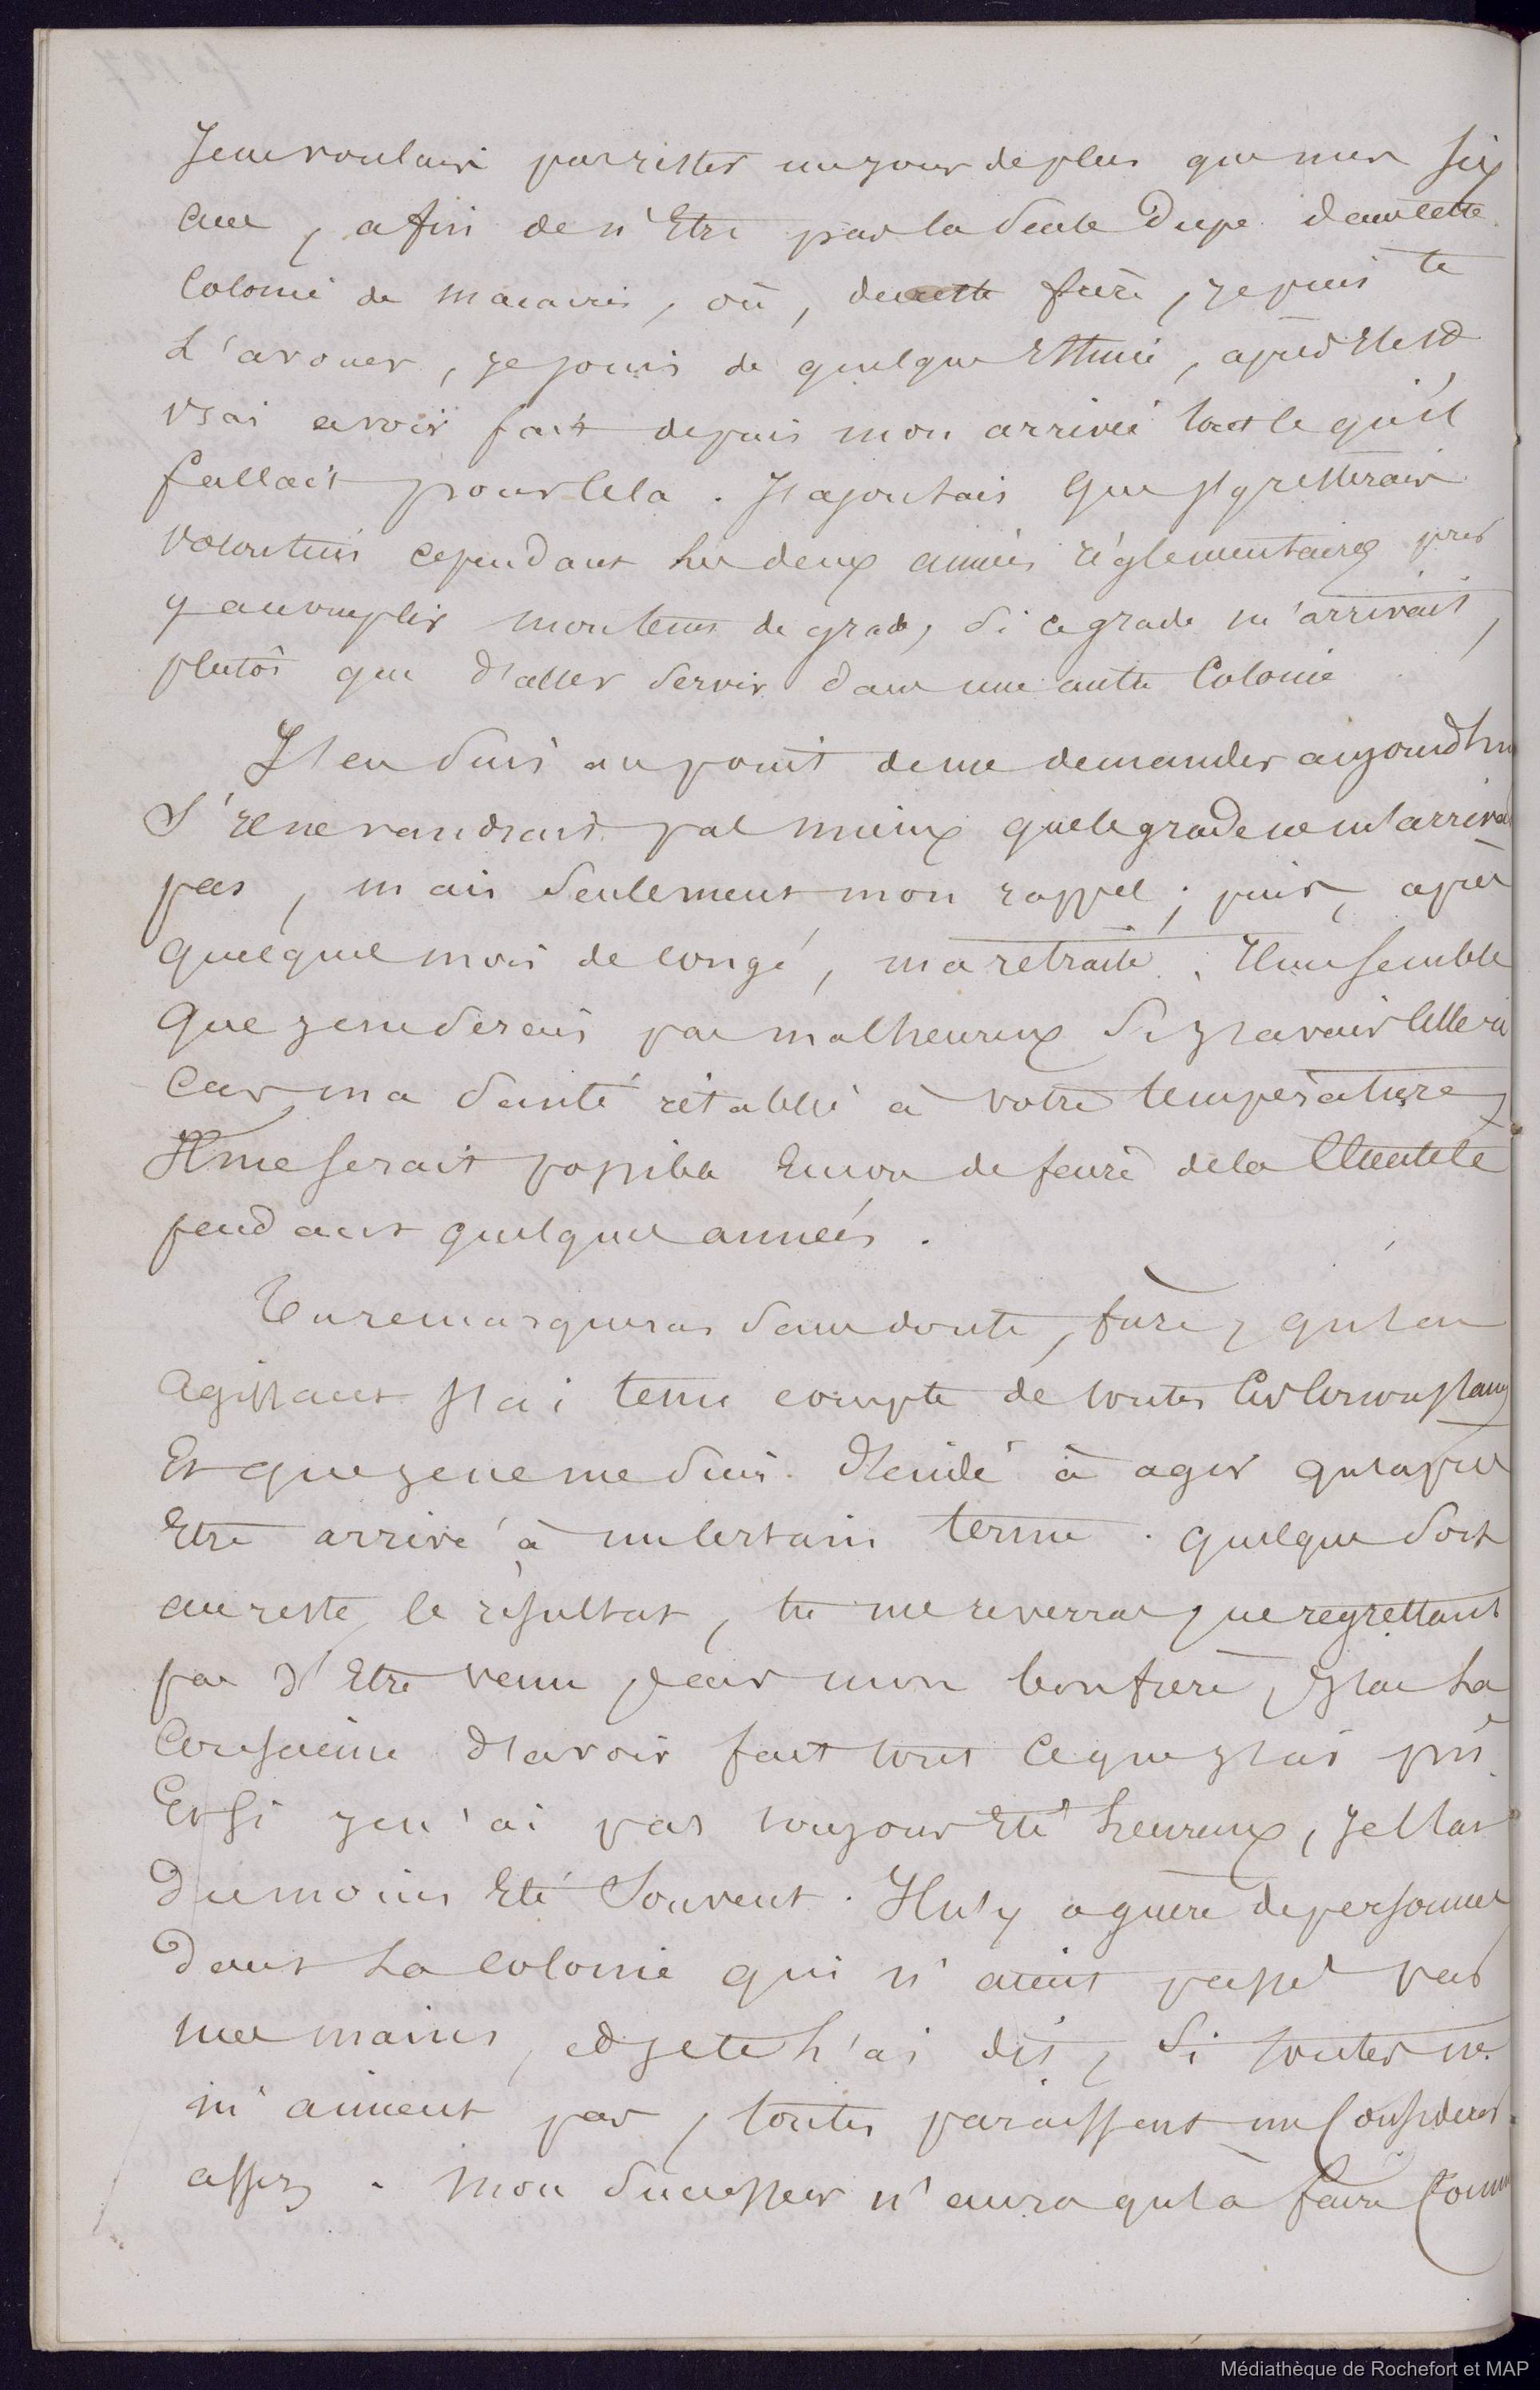 Je ne voulais pas rester un jour de plus que mes six
ans, afin de n'être pas la seule dupe dans cette
Colonie de macaires, où, frère, je puis te
l'avouer, je jouis de quelque estime, après il est
vrai avoir fait depuis mon arrivée tout ce qu'il
fallait pour cela. J'ajoutais que j'y resterais
volontiers cependant les deux années réglementaires pour
y accomplir mon tems de grade, si ce grade m'arrivait,
plutôt que d'aller servir dans une autre Colonie.
J'en suis au point de me demander aujourd'hui
s'il ne vaudrait pas mieux que le grade ne m'arrivât
pas, mais seulement mon rappel; puis, après
quelques mois de congé, ma retraite. Il me semble
que je ne serais pas malheureux si j'avais celle-ci
Car, ma santé rétablie à votre température,
Il me serait possible encore de faire de la Clientèle
pendant quelques années.
Tu remarqueras sans doute, frère, qu'en
agissant j'ai tenu compte de toutes les Circonstances
Et que je ne me suis décidé à agir qu'après
Etre arrivé à un certain terme. quelque soit
au reste, le résultat, tu me reverras ne regrettant
pas d'Etre venu, car mon bon frère, j'ai la
Conscience d'avoir fait tout ce que j'ai pû.
Et si je n'ai pas toujours Eté heureux, je l'ai
du moins Eté souvent. Il n'y a guère de personnes
dans la colonie qui n'aient passé par
mes mains, et je te l'ai dit, si toutes ne
m'aiment pas, toutes paraissent me Considérer
assez. Mon successeur n'aura qu'à faire Comme
Médiathèque de Rochefort et MAP